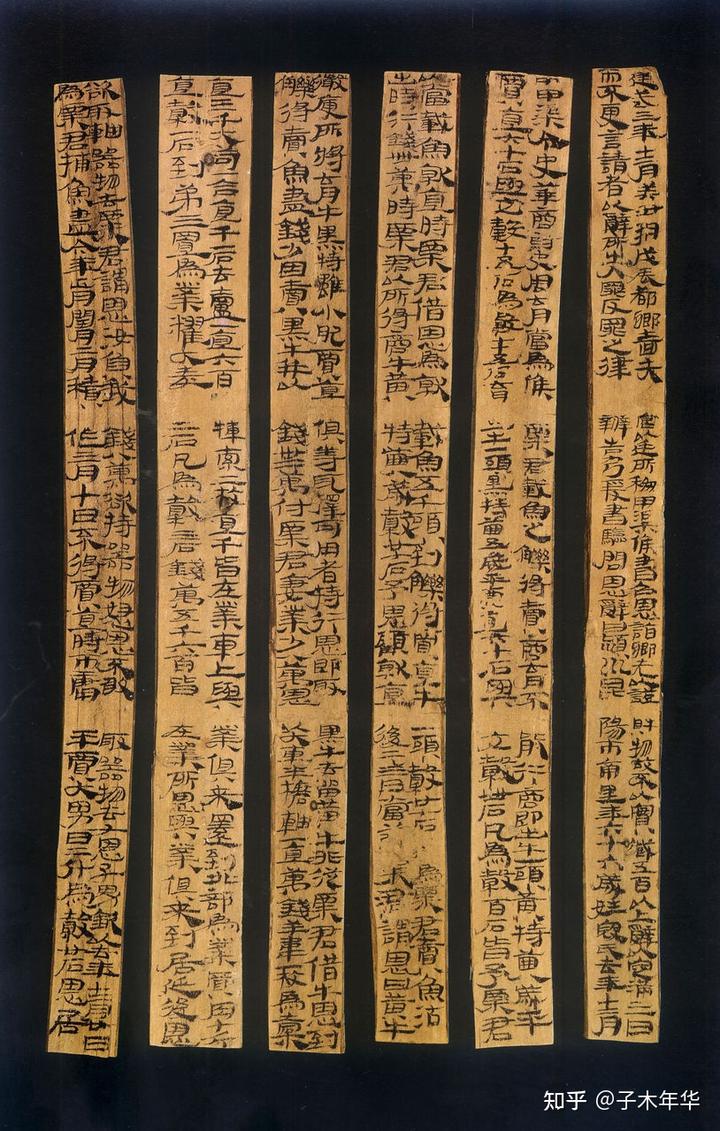 建武三年十二月癸丑朔戊辰都鄉嗇夫宮以廷所移甲渠候書召恩詣鄉先以證財物故不以實臧五百以上辭以定滿三日
而不更言請者以辭所出入罪反罪之律辨告乃爰書驗問恩辭曰潁川昆陽市南里年六十六歲姓寇氏去年十二月
中甲渠令史華商尉史周育當為候粟君載魚之觻得賣商育不能行商即出牛一頭黃特齒八歲平
賈直六十石與它穀十五石為穀七十五石育出牛一頭黑特齒五歲平賈直六十石與它穀卌石凡為穀百石皆予粟君
以當載魚就直時粟君借恩為就載魚五千頭到觻得賈直牛一頭穀廿七石約為粟君賣魚沽
出時行錢卌萬時粟君以所得商牛黃特齒八歲穀廿七石予恩顧就直後二三日當發粟君謂恩曰黃牛
微庾所將育牛黑特雖小肥賈直俱等耳擇可用者持行恩即取黑牛去留黃牛非從粟君借牛恩到
觻得賣魚盡錢少因賣黑牛并以錢卅二萬付粟君妻業少八萬恩以大車半軸一直萬錢羊韋一枚為橐
直三千大笥一合直千一石去盧一直六百㯱索二枚直千皆在業車上與業俱來還到北部為業賣肉十斤
直穀一石到第三置為業糴大麥二石凡為穀三石錢萬五千六百皆在業所恩與業俱來到居延後恩
欲取軸器物去粟君謂恩汝負我錢八萬欲持器物怒恩不敢取器物去又恩子男欽以去年十二月廿日
為粟君捕魚盡今年正月閏月二月積作三月十日不得賈直時市庸平賈大男日二斗為穀廿石恩居
知乎 @子木年华